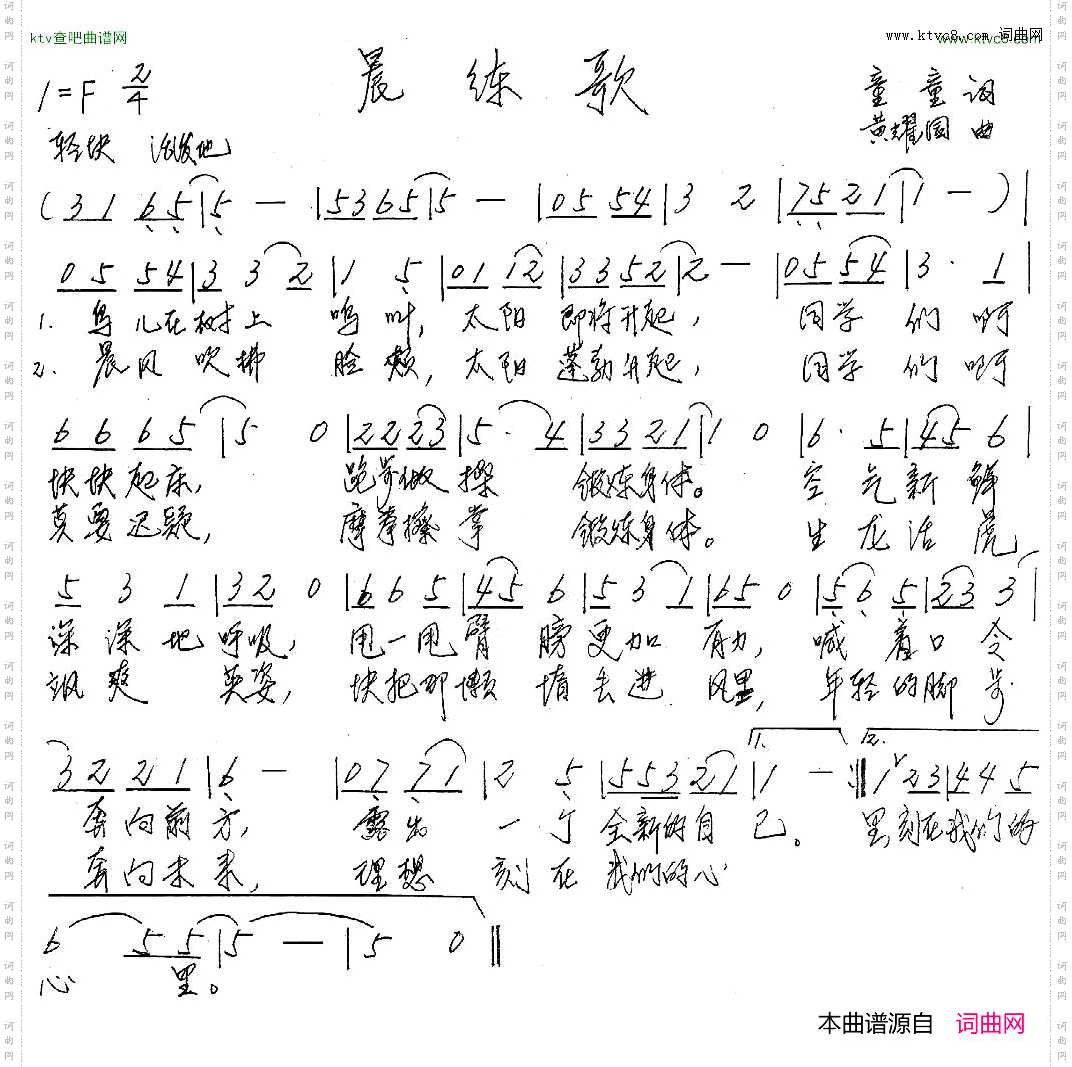 ktv查吧曲谱网
www.ktvc8.com 词曲网
晨练歌
1=F 2/4
童童 词
黄耀国 曲
轻快 活泼地
(3 1 6 5|5 — |5 3 6 5|5 — |0 5 5 4|3 2 |7 5 2 1|1 — )|
0 5 5 4|3 3 2|1 5|0 1 1 2|3 3 5 2|2 — |0 5 5 4|3· 1|
1. 鸟儿在树上 鸣叫, 太阳 即将升起, 同学们啊
2. 晨风吹拂 脸颊, 太阳 蓬勃升起, 同学们啊
6 6 6 5|5 0|2 2 2 3|5· 4|3 3 2 1|1 0|6· 5|4 5 6|
快快起床, 跑步做操 锻炼身体。 空气新鲜
莫要迟疑, 摩拳擦掌 锻炼身体。 生龙活虎
5 3 1|3 2 0|6 6 5|4 5 6|5 3 1|6 5 0|5 6 5|2 3 3|
深深地呼吸, 甩一甩臂膀更加有力, 喊着口令
飒爽英姿, 快把那懒惰丢进风里, 年轻的脚步
1. 2.
3 2 2 1|6 — |0 7 7 1|2 5|5 5 3 2 1|1 — :‖1 2 3|4 4 5
奔向前方, 露出一个全新的自己。 里,刻在我们的
奔向未来, 理想刻在我们的心
6 5 5|5 — |5 0‖
心里。
本曲谱源自 词曲网